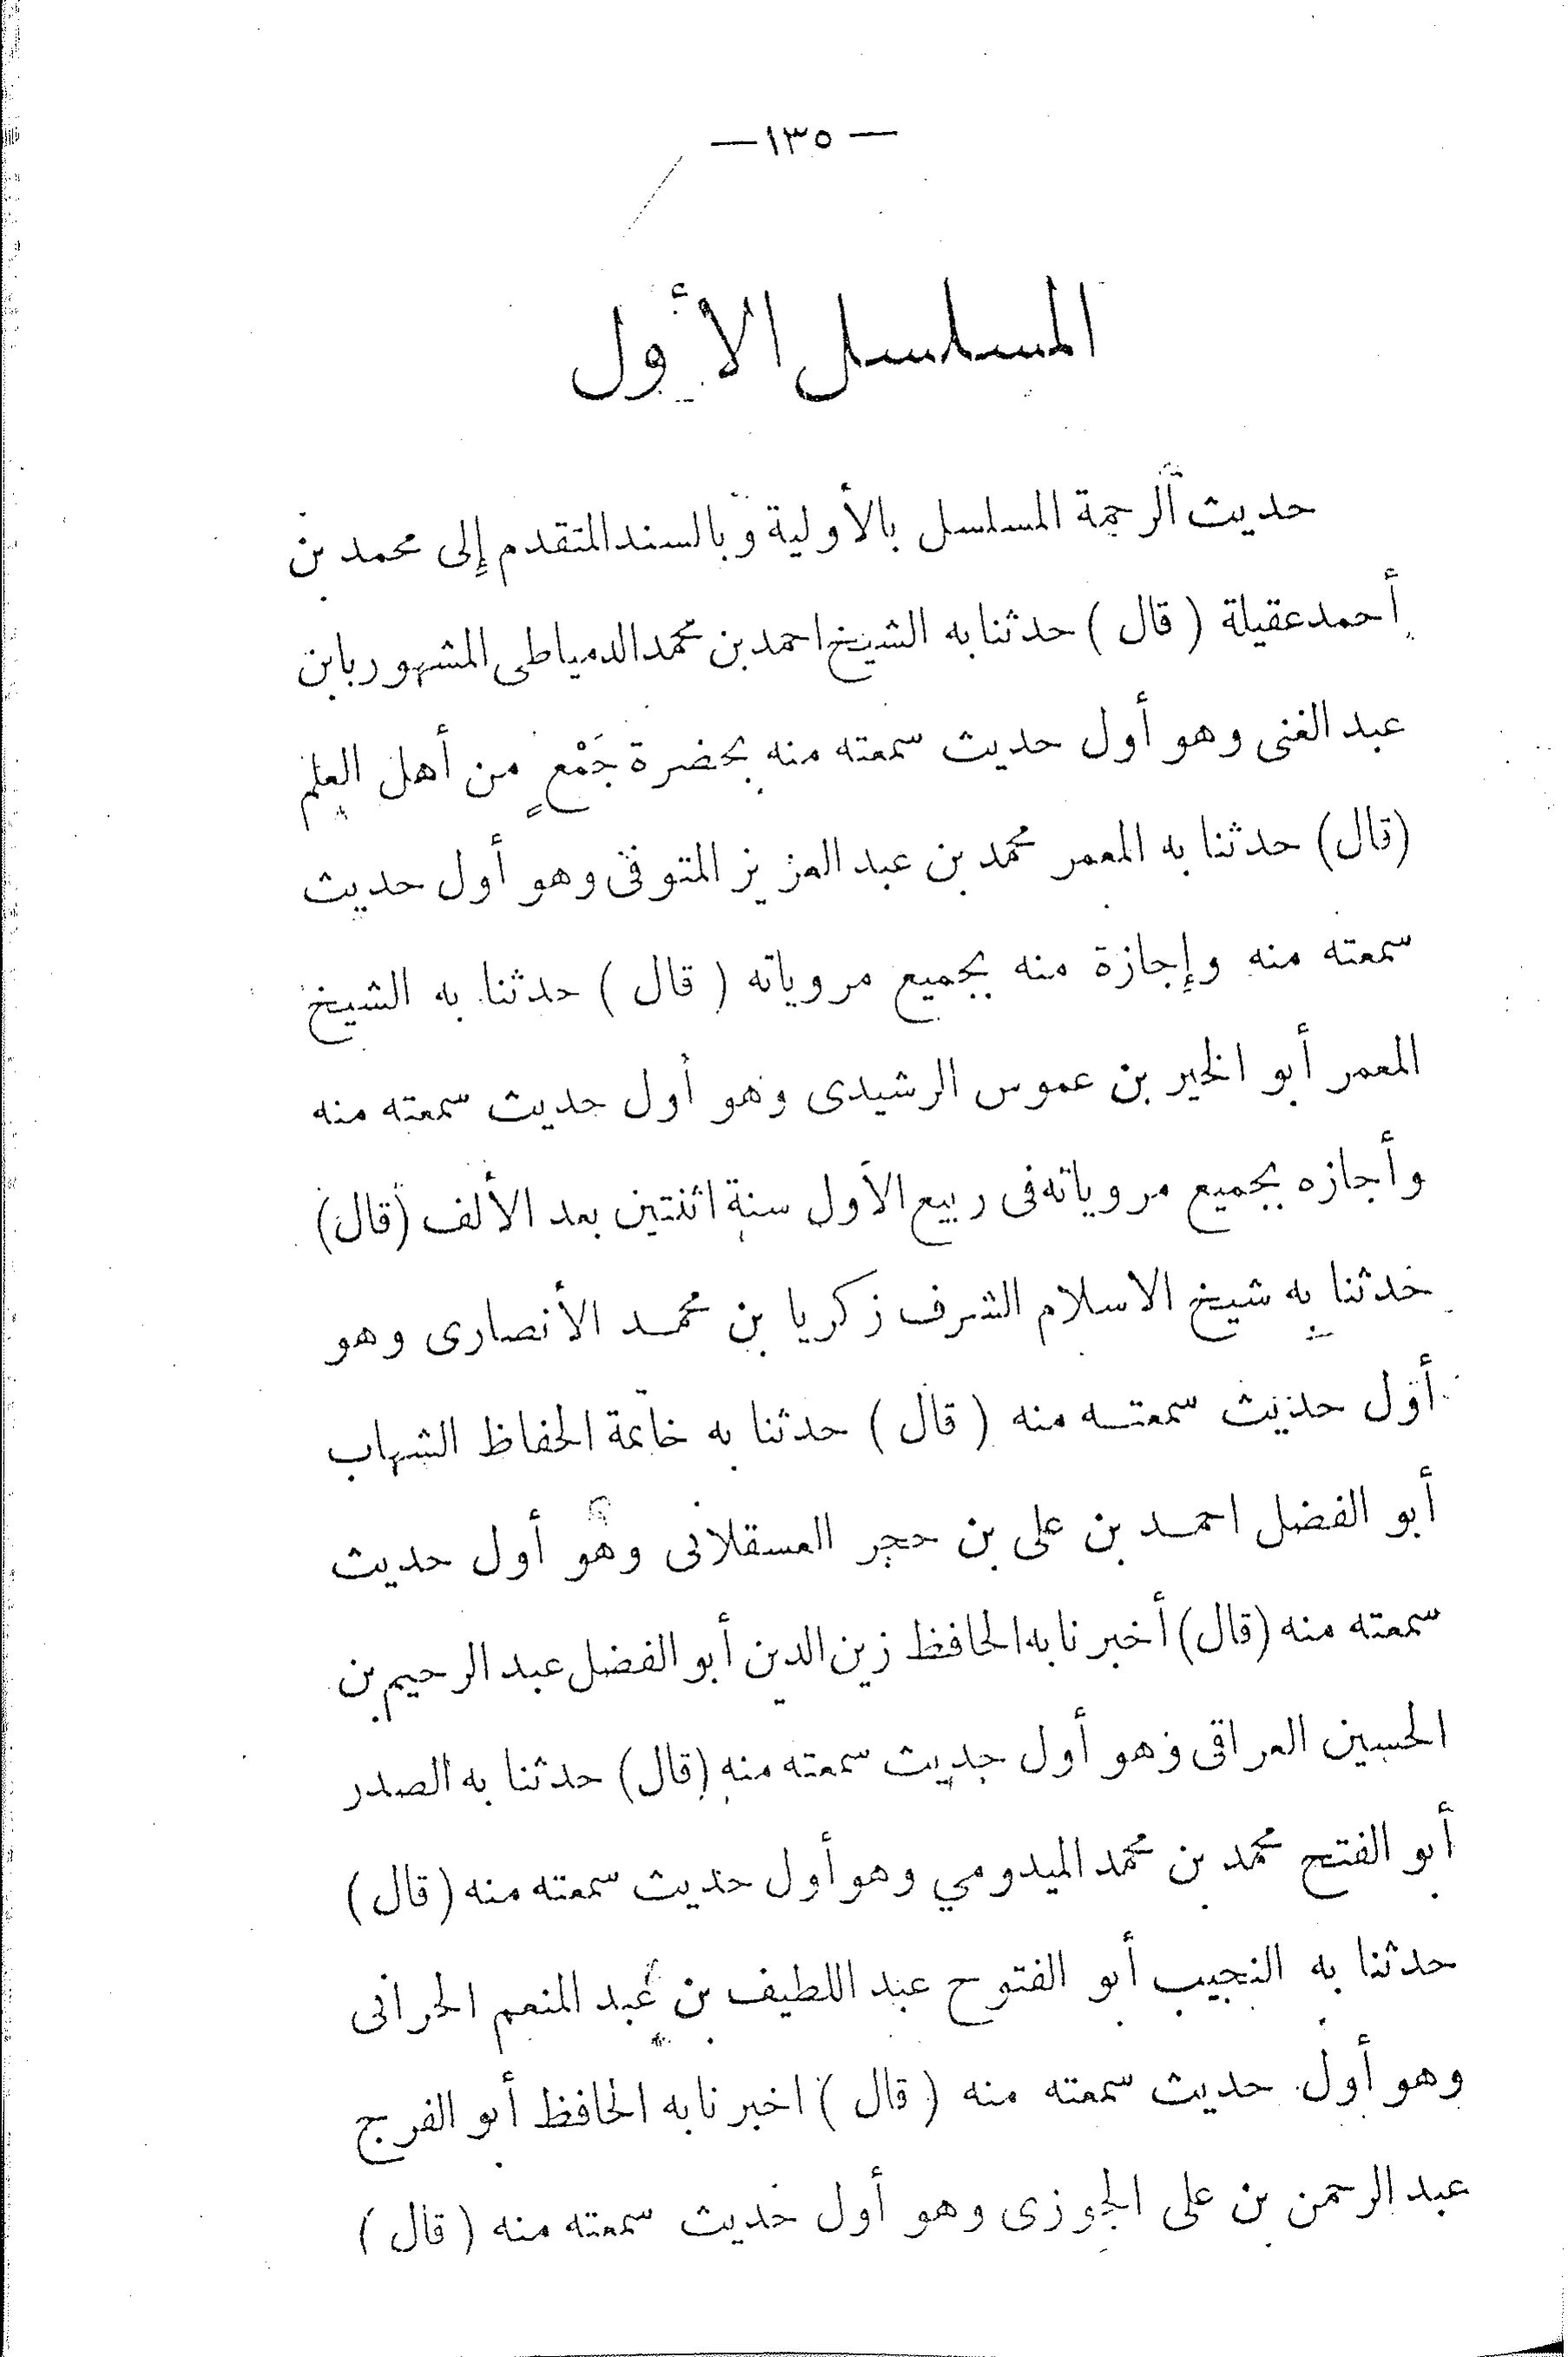 — ١٣٥ —
المسلسل الأول
حديث الرحمة المسلسل بالأولية وبالسند المتقدم إلى محمد بن
أحمد عقيلة ( قال ) حدثنا به الشيخ احمد بن محمد الدمياطى المشهور بابن
عبد الغنى وهو أول حديث سمعته منه بحضرة جَمْعٍ من أهل العلم
(قال) حدثنا به المعمر محمد بن عبد العزيز المتوفى وهو أول حديث
سمعته منه وإجازة منه بجميع مروياته ( قال ) حدثنا به الشيخ
المعمر أبو الخير بن عموس الرشيدى وهو أول حديث سمعته منه
وأجازه بجميع مروياته فى ربيع الأول سنة اثنتين بعد الألف (قال)
حدثنا به شيخ الاسلام الشرف زكريا بن محمد الأنصارى وهو
أول حديث سمعته منه ( قال ) حدثنا به خاتمة الحفاظ الشهاب
أبو الفضل احمد بن على بن حجر العسقلانى وهو أول حديث
سمعته منه (قال) أخبرنا به الحافظ زين الدين أبو الفضل عبد الرحيم بن
الحسين العراقى وهو أول حديث سمعته منه (قال) حدثنا به الصدر
أبو الفتح محمد بن محمد الميدومي وهو أول حديث سمعته منه (قال)
حدثنا به النجيب أبو الفتوح عبد اللطيف بن عبد المنعم الحرانى
وهو أول حديث سمعته منه ( قال ) اخبرنا به الحافظ أبو الفرج
عبد الرحمن بن على الجوزى وهو أول حديث سمعته منه ( قال )